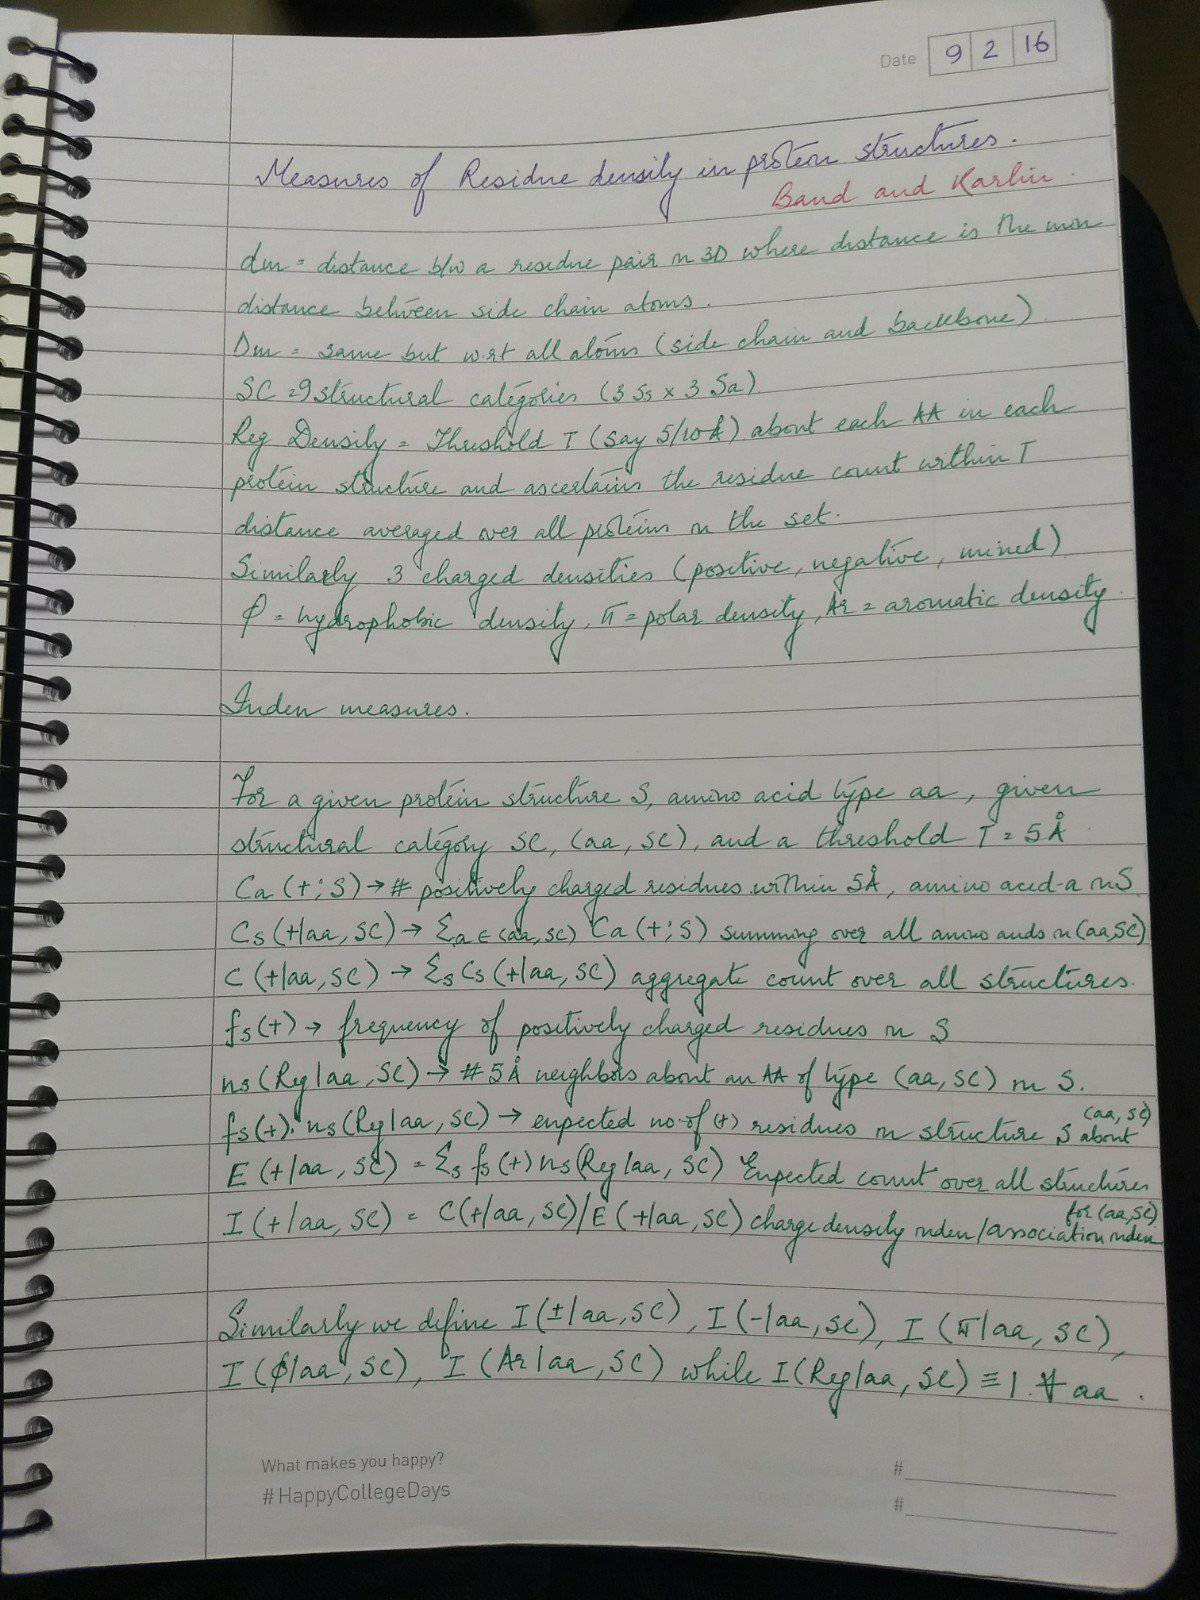 Date 9 2 16
Measures of Residue density in protein structures.
Baud and Karlin.
dm = distance b/w a residue pair in 3D where distance is the min
distance between side chain atoms.
Dm = same but w.r.t all atoms (side chain and backbone)
SC = 9 structural categories (3 Ss x 3 Sa)
Reg Density = Threshold T (say 5/10Å) about each AA in each
protein structure and ascertains the residue count within T
distance averaged over all proteins in the set.
Similarly 3 charged densities (positive, negative, mixed)
φ = hydrophobic density, π = polar density, Ar = aromatic density.
Index measures.
For a given protein structure S, amino acid type aa, given
structural category SC, (aa, SC), and a threshold T = 5Å
Ca (+; S) → # positively charged residues within 5Å, amino acid-a in S
Cs (+|aa, SC) → Σa ∈ (aa, SC) Ca (+; S) summing over all amino acids in (aa, SC)
C (+|aa, SC) → Σs Cs (+|aa, SC) aggregate count over all structures.
fs(+) → frequency of positively charged residues in S
ns (Reg|aa, SC) → # 5Å neighbors about an AA of type (aa, SC) in S.
fs(+). ns (Reg|aa, SC) → expected no. of (+) residues in structure S about (aa, SC)
E (+|aa, SC) = Σs fs(+) ns (Reg|aa, SC) Expected count over all structures
I (+|aa, SC) = C(+|aa, SC)/E (+|aa, SC) charge density index/association index for (aa, SC)
Similarly we define I (±|aa, SC), I (-|aa, SC), I (π|aa, SC),
I (φ|aa, SC), I (Ar|aa, SC) while I(Reg|aa, SC) ≡ 1. ∀ aa.
What makes you happy? #
#HappyCollegeDays #